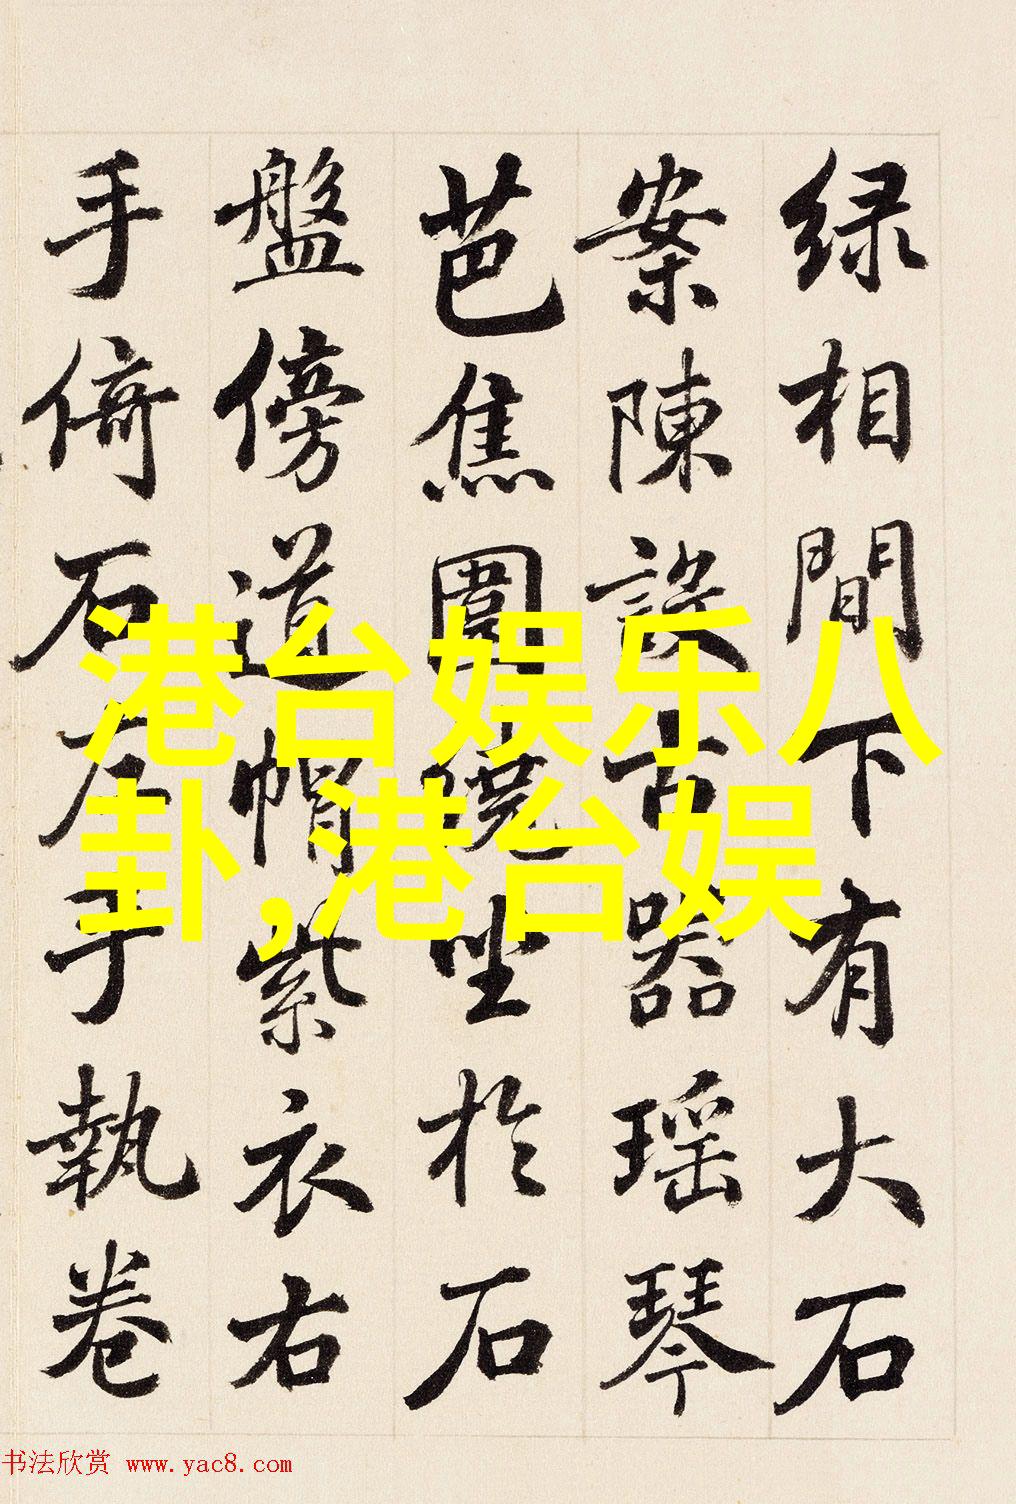 绿相間下有大石
案陳設古器瑶琴
芭焦圍繞坐於石
盤傍道帽紫衣右
手倚石左手執卷
港台娱乐八
卦,港台娱
书法欣赏 www.yac8.com